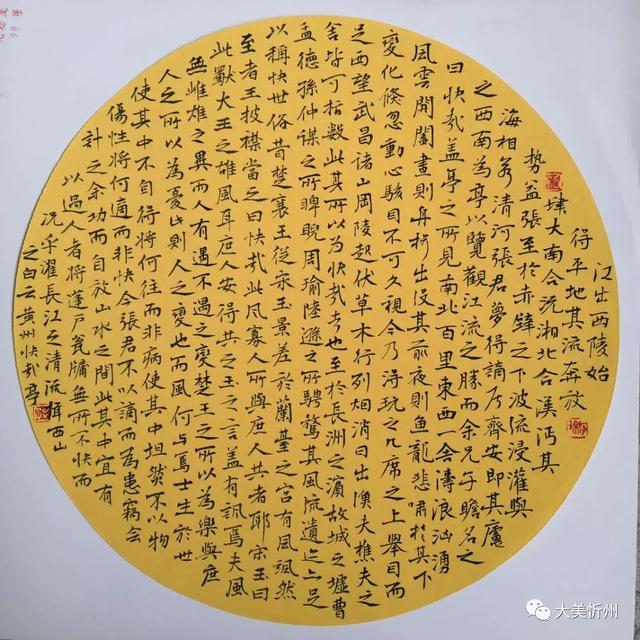 江出西陵始
得平地其流奔放
肆大南合沅湘北合漢沔其
势益張至於赤鐸之下波流浸灌與
海相若清河張君夢得謫居齊安即其廬
之西南為亭以覽觀江流之勝而余兄子瞻名之
曰快哉盖亭之所見南北百里東西一舍濤浪汹湧
風雲開闔晝則舟楫出没其前夜則魚龍悲啸於其下
變化倏忽動心駭目不可久視今乃得玩之几席之上舉目而
足西望武昌诸山岡陵起伏草木行列烟消日出漁夫樵夫之
舍皆可指數此其所以為快哉者也至於長洲之濱故城之墟曹
孟德孫仲谋之所睥睨周瑜陸遜之所騁騖其風流遺迹亦足
以稱快世俗昔楚襄王從宋玉景差於蘭臺之宫有風颯然
至者王披襟當之曰快哉此風寡人所與庶人共者耶宗玉曰
此獸大王之雄風耳庶人安得共之王之言盖有諷焉夫風
無雌雄之異而人有遇不遇之變楚王之所以為樂與庶
人之所以為憂此則人之變也而風何与焉士生於世
使其中不自得將何往而非病使其中坦然不以物
傷性將何適而非快今張君不以謫而為患竊会
計之余功而自放山水之間此其中宜有
以過人者將蓬户瓮牖無所不快而
况乎濯長江之清流挹西山
之白云黄州快哉亭
大美忻州